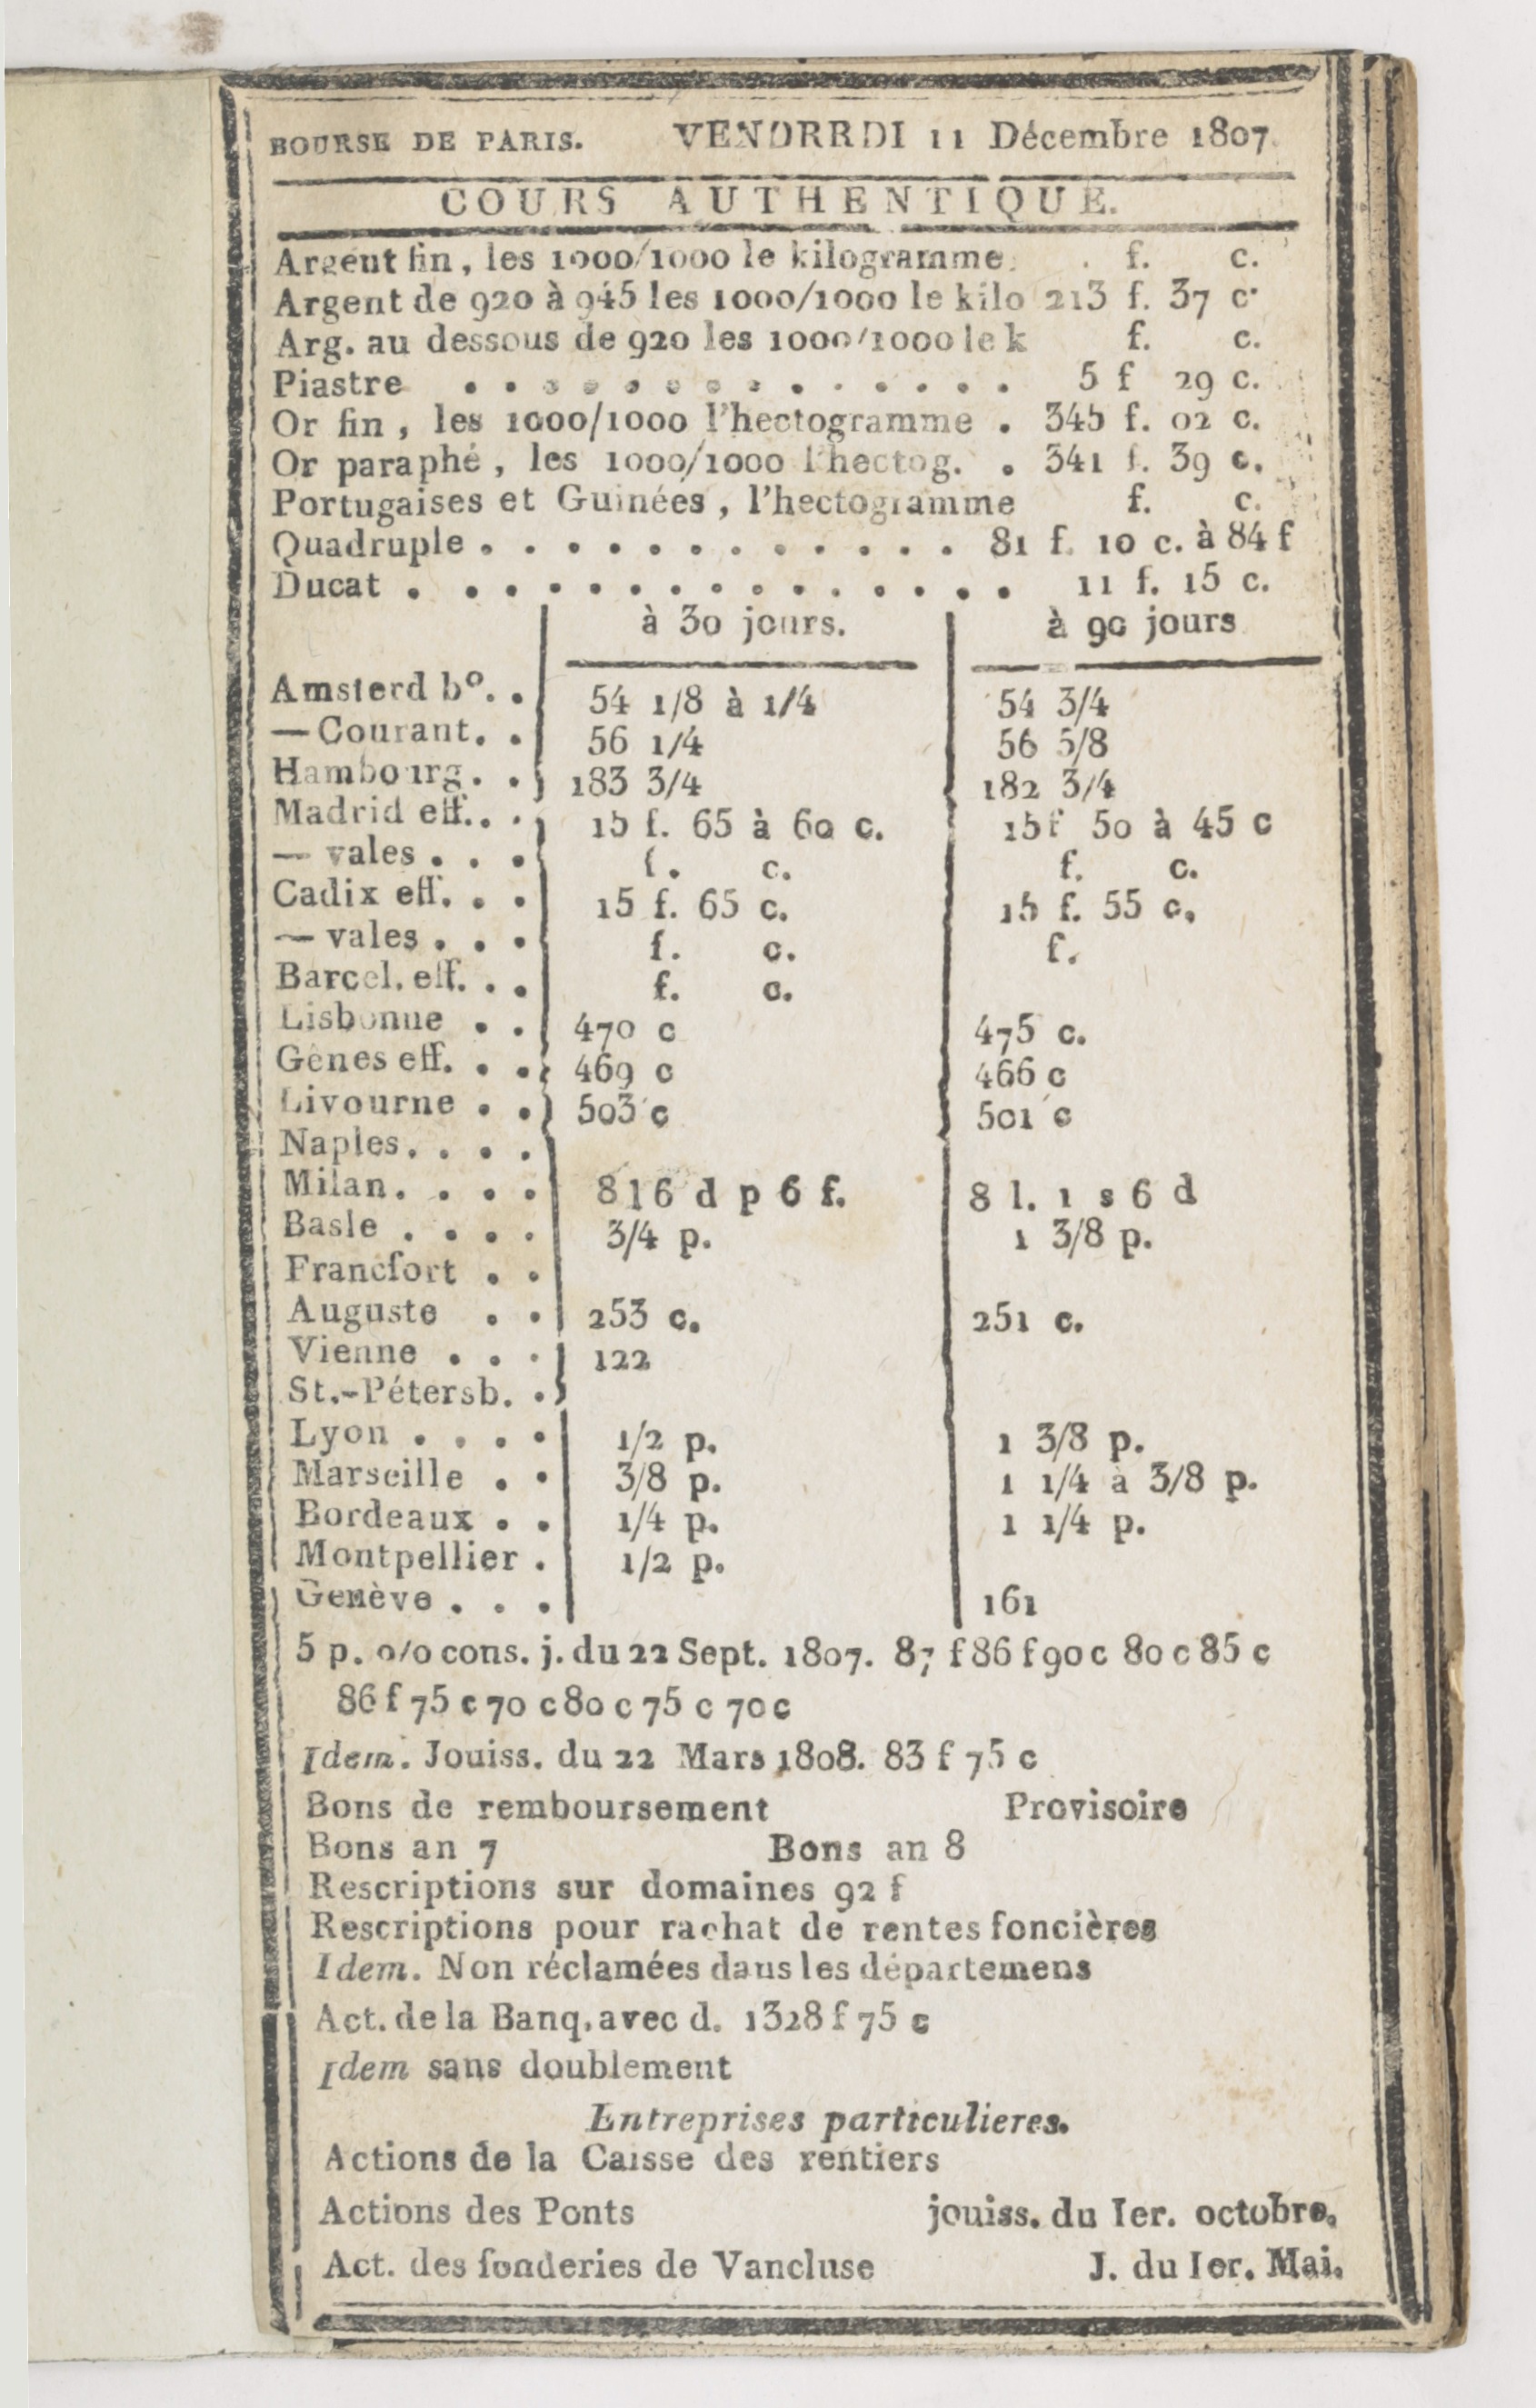 BOURSE DE PARIS. VENDRRDI 11 Décembre 1807.
COURS AUTHENTIQUE.
Argent fin, les 1000/1000 le kilogramme. . f. c.
Argent de 920 à 945 les 1000/1000 le kilo 213 f. 37 c.
Arg. au dessous de 920 les 1000/1000 le k f. c.
Piastre . . . . . . . . . . . . . . 5 f 29 c.
Or fin, les 1000/1000 l'hectogramme . 345 f. 02 c.
Or paraphé, les 1000/1000 l'hectog. . 341 f. 39 c.
Portugaises et Guinées, l'hectogramme f. c.
Quadruple . . . . . . . . . . . . 81 f. 10 c. à 84 f
Ducat . . . . . . . . . . . . . . . 11 f. 15 c.
à 30 jours. à 90 jours
Amsterd bo. . 54 1/8 à 1/4 54 3/4
— Courant. . 56 1/4 56 5/8
Hambourg. . 183 3/4 182 3/4
Madrid eff. . . 15 f. 65 à 60 c. 15 f 50 à 45 c
— vales . . . f. c. f. c.
Cadix eff. . . 15 f. 65 c. 15 f. 55 c.
— vales . . . f. c. f.
Barcel. eff. . . f. c.
Lisbonne . . 470 c 475 c.
Gênes eff. . . 469 c 466 c
Livourne . . 503 c 501 c
Naples. . . .
Milan. . . . 8 1 6 d p 6 f. 8 l. 1 s 6 d
Basle . . . . 3/4 p. 1 3/8 p.
Francfort . .
Auguste . . 253 c. 251 c.
Vienne . . . 122
St.-Pétersb. .
Lyon . . . . 1/2 p. 1 3/8 p.
Marseille . . 3/8 p. 1 1/4 à 3/8 p.
Bordeaux . . 1/4 p. 1 1/4 p.
Montpellier . 1/2 p.
Genève . . . 161
5 p. 0/0 cons. j. du 22 Sept. 1807. 87 f 86 f 90 c 80 c 85 c
86 f 75 c 70 c 80 c 75 c 70 c
Idem. Jouiss. du 22 Mars 1808. 83 f 75 c
Bons de remboursement Provisoire
Bons an 7 Bons an 8
Rescriptions sur domaines 92 f
Rescriptions pour rachat de rentes foncières
Idem. Non réclamées dans les départemens
Act. de la Banq. avec d. 1328 f 75 c
Idem sans doublement
Entreprises particulieres.
Actions de la Caisse des rentiers
Actions des Ponts jouiss. du Ier. octobre.
Act. des fonderies de Vancluse J. du Ier. Mai.